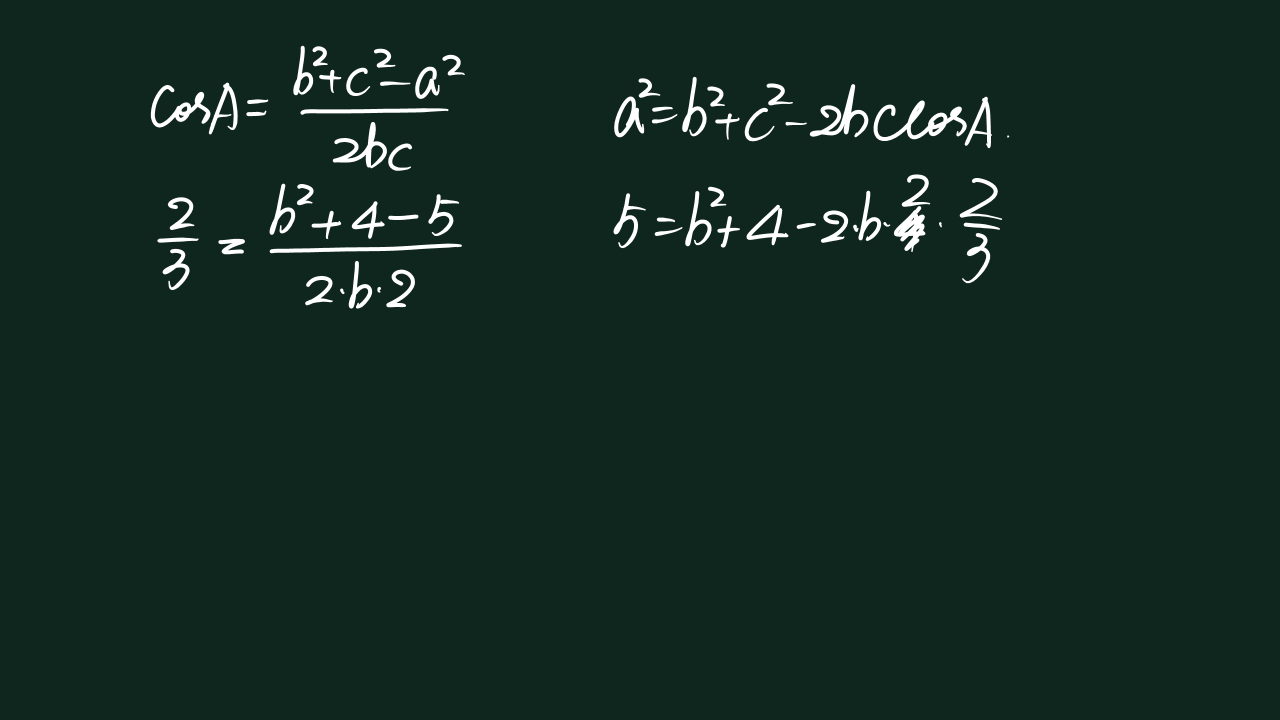 cosA = (b²+c²-a²)/(2bc)
2/3 = (b²+4-5)/(2·b·2)
a²=b²+c²-2bccosA.
5=b²+4-2·b·2·2/3